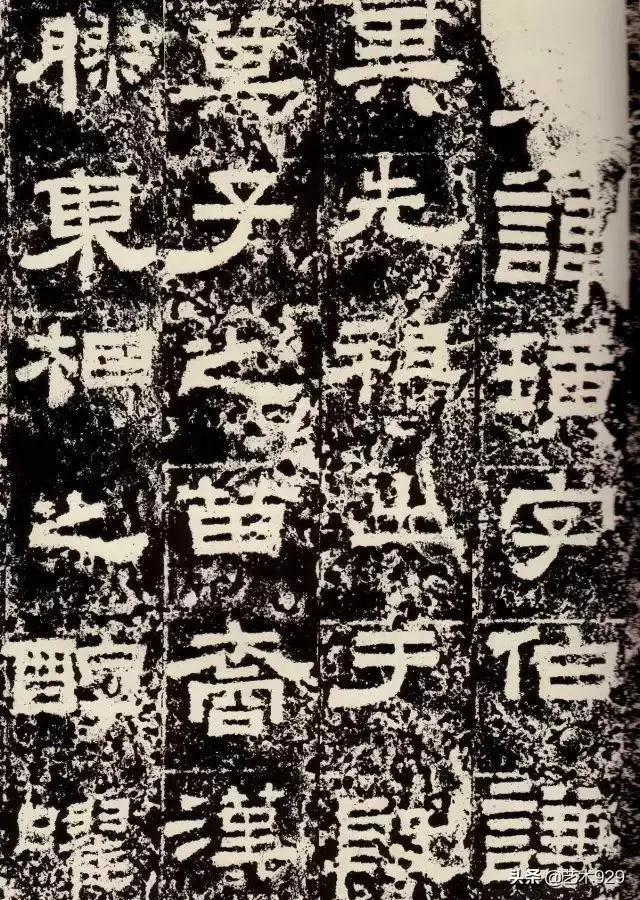 諱璜字伯謙
其先祖出于殷
箕子之苗裔漢
膠東相之醇曜
头条 @艺术929